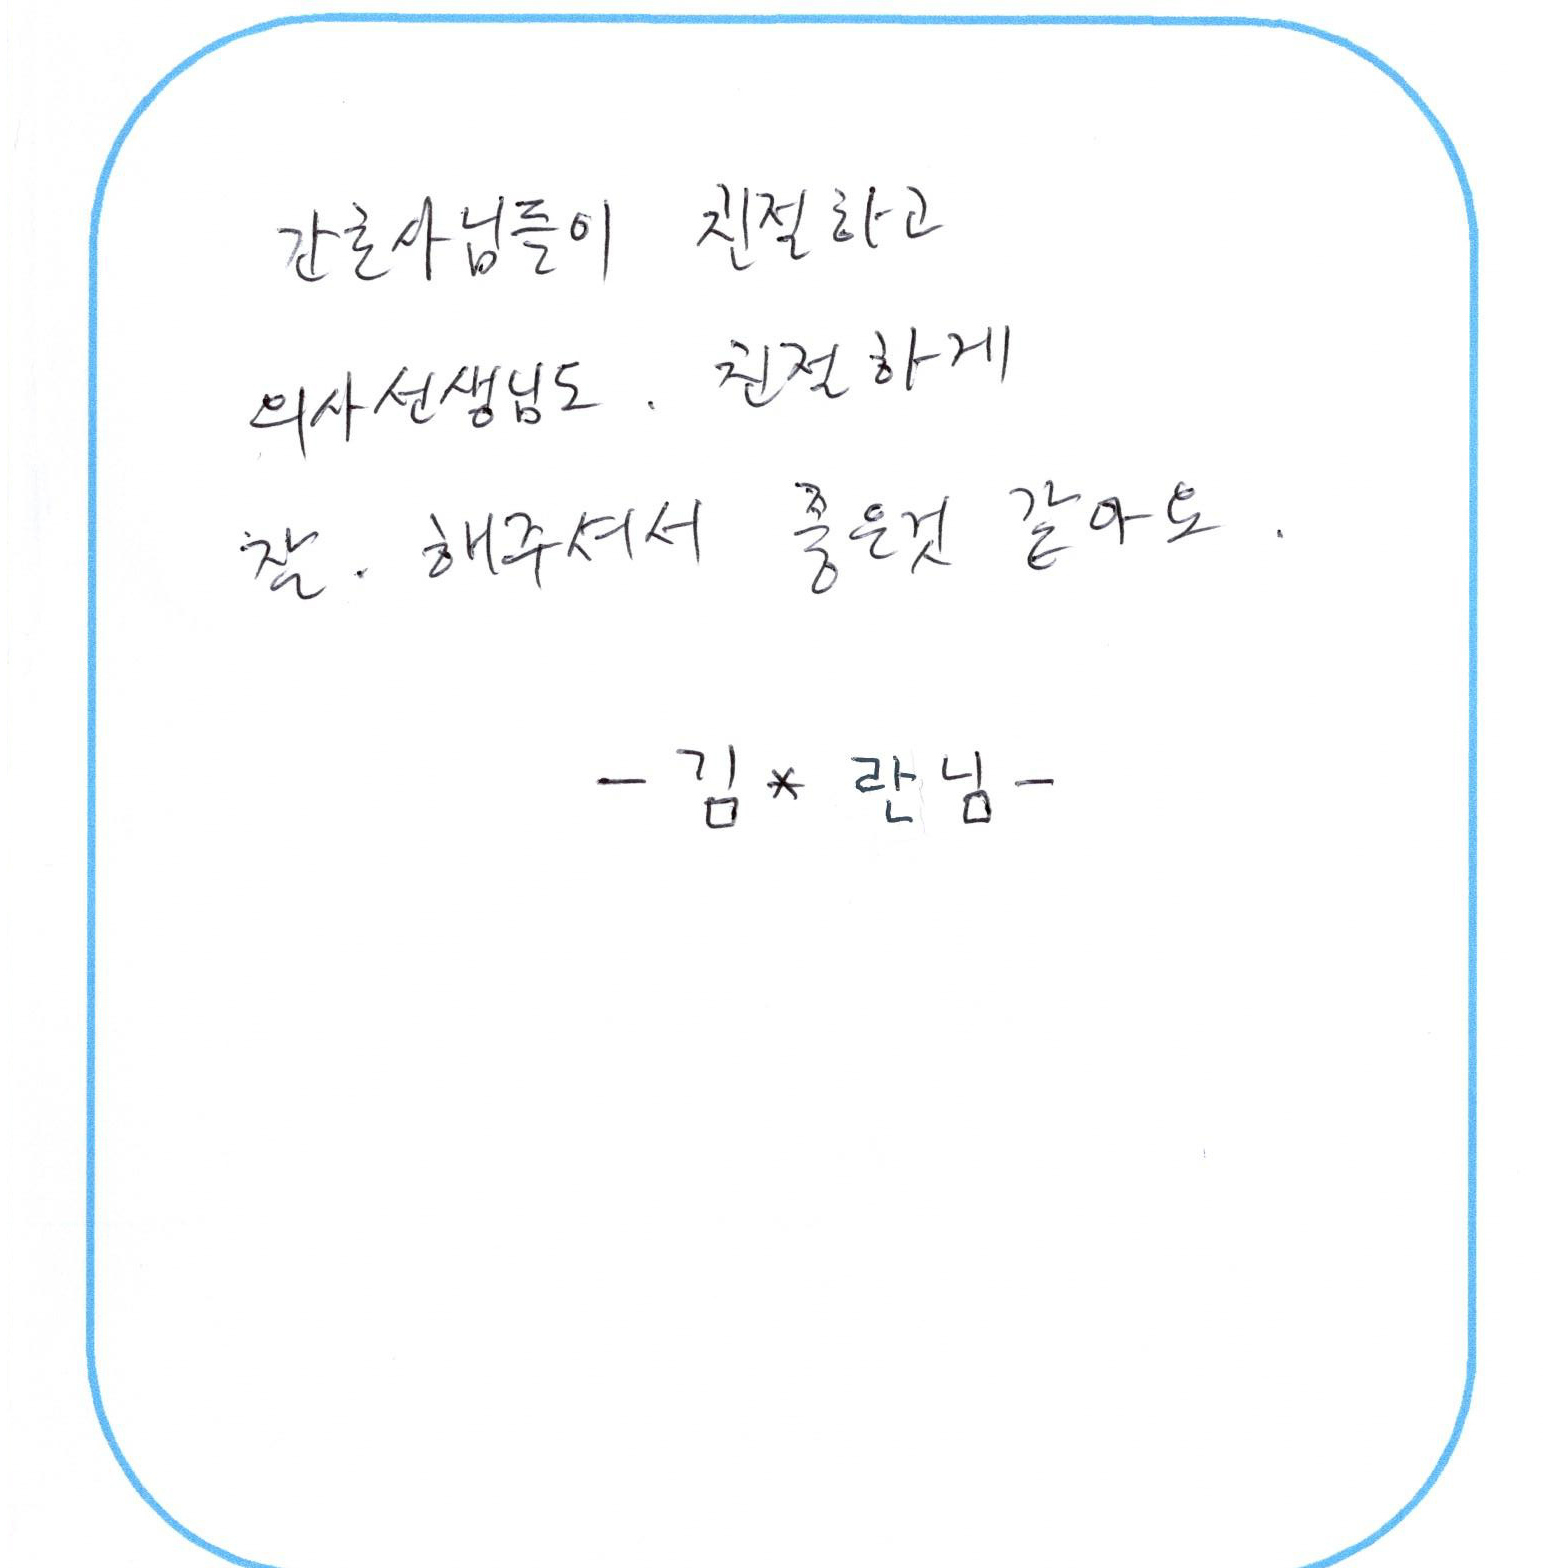 간호사님들이 친절하고
의사선생님도. 친절하게
잘. 해주셔서 좋은것 같아요.
- 김*란님 -